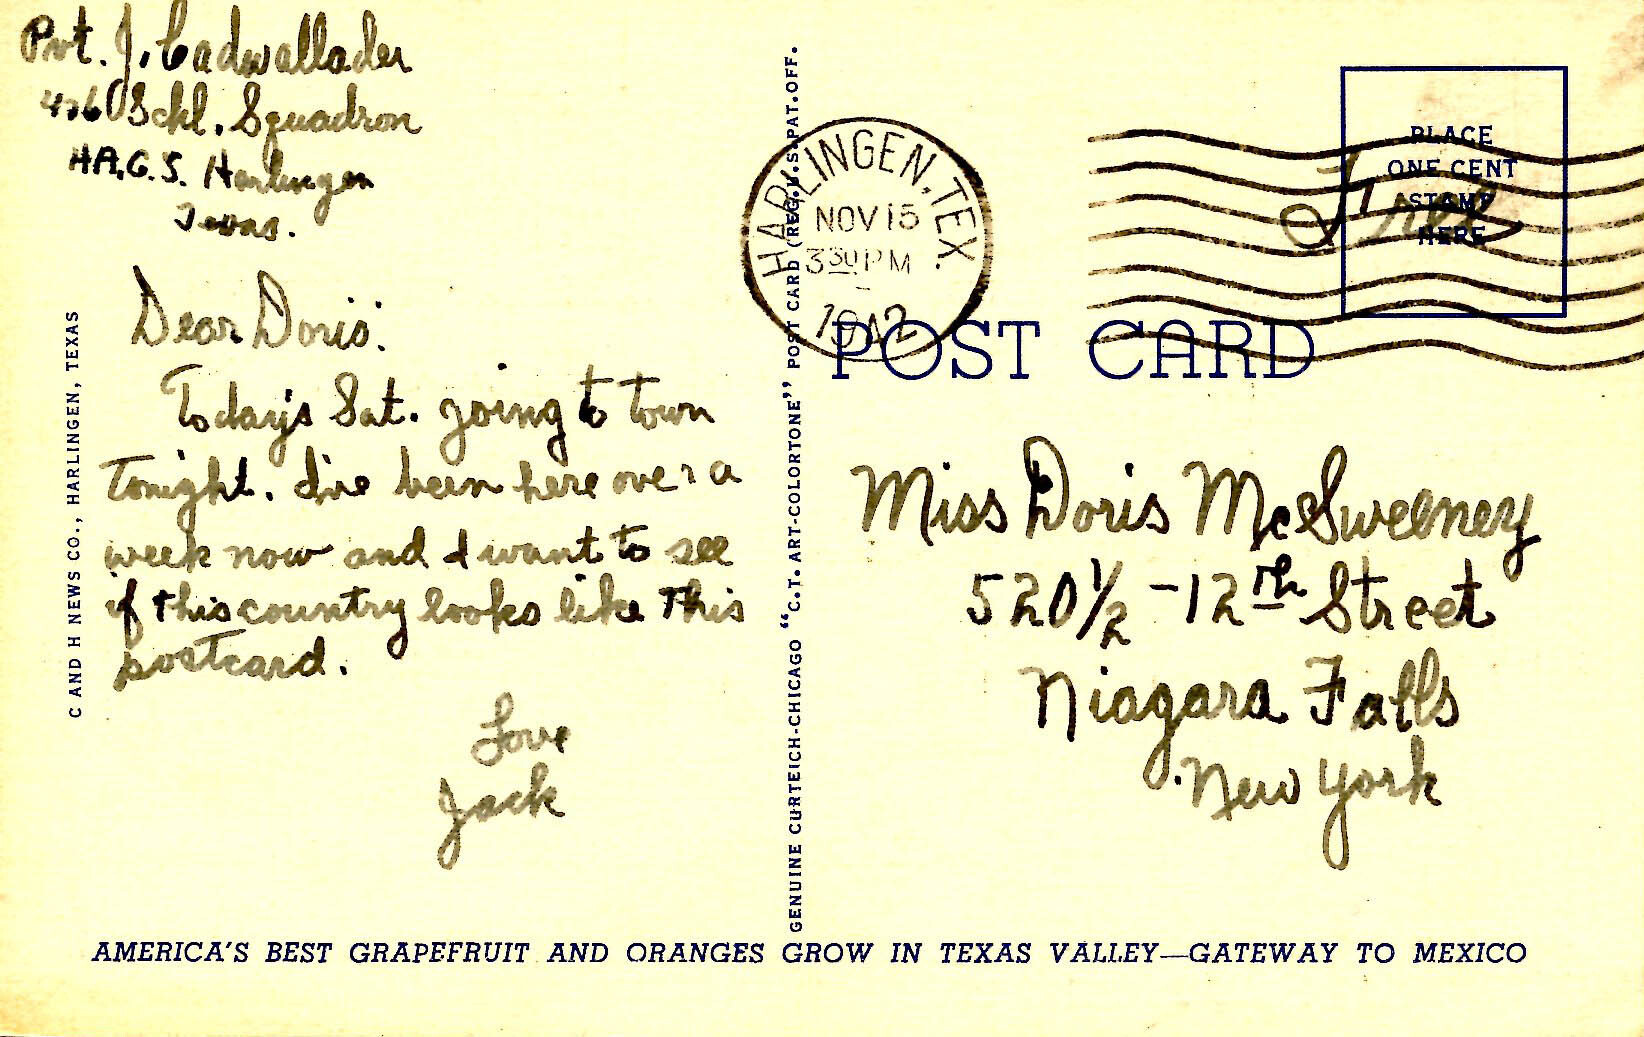 Pvt. J. Cadwallader
Schl. Squadron
H.A.G.S. Harlingen
Texas.
Dear Doris:
Today's Sat. going to town
tonight. I've been here over a
week now and I want to see
if this country looks like this
postcard.
Love
Jack
C AND H NEWS CO., HARLINGEN, TEXAS
GENUINE CURTEICH-CHICAGO "C.T. ART-COLORTONE" POST CARD (REG. U.S. PAT. OFF.
HARLINGEN, TEX.
NOV 15
3 30 PM
1942
PLACE
ONE CENT
STAMP
HERE
Free
POST CARD
Miss Doris McSweeney
520½ - 12th Street
Niagara Falls
New York
AMERICA'S BEST GRAPEFRUIT AND ORANGES GROW IN TEXAS VALLEY—GATEWAY TO MEXICO